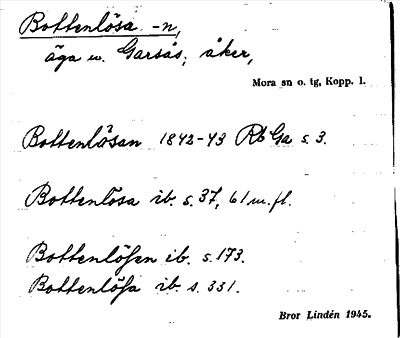 Bottenlösa -n,
äga u. Garsås, åker,
Mora sn o. tg, Kopp. l.
Bottenlösan 1842-43 Rb Ga s. 3.
Bottenlösa ib. s. 37, 61 m. fl.
Bottenlösen ib. s. 173.
Bottenlösa ib. s. 331.
Bror Lindén 1945.